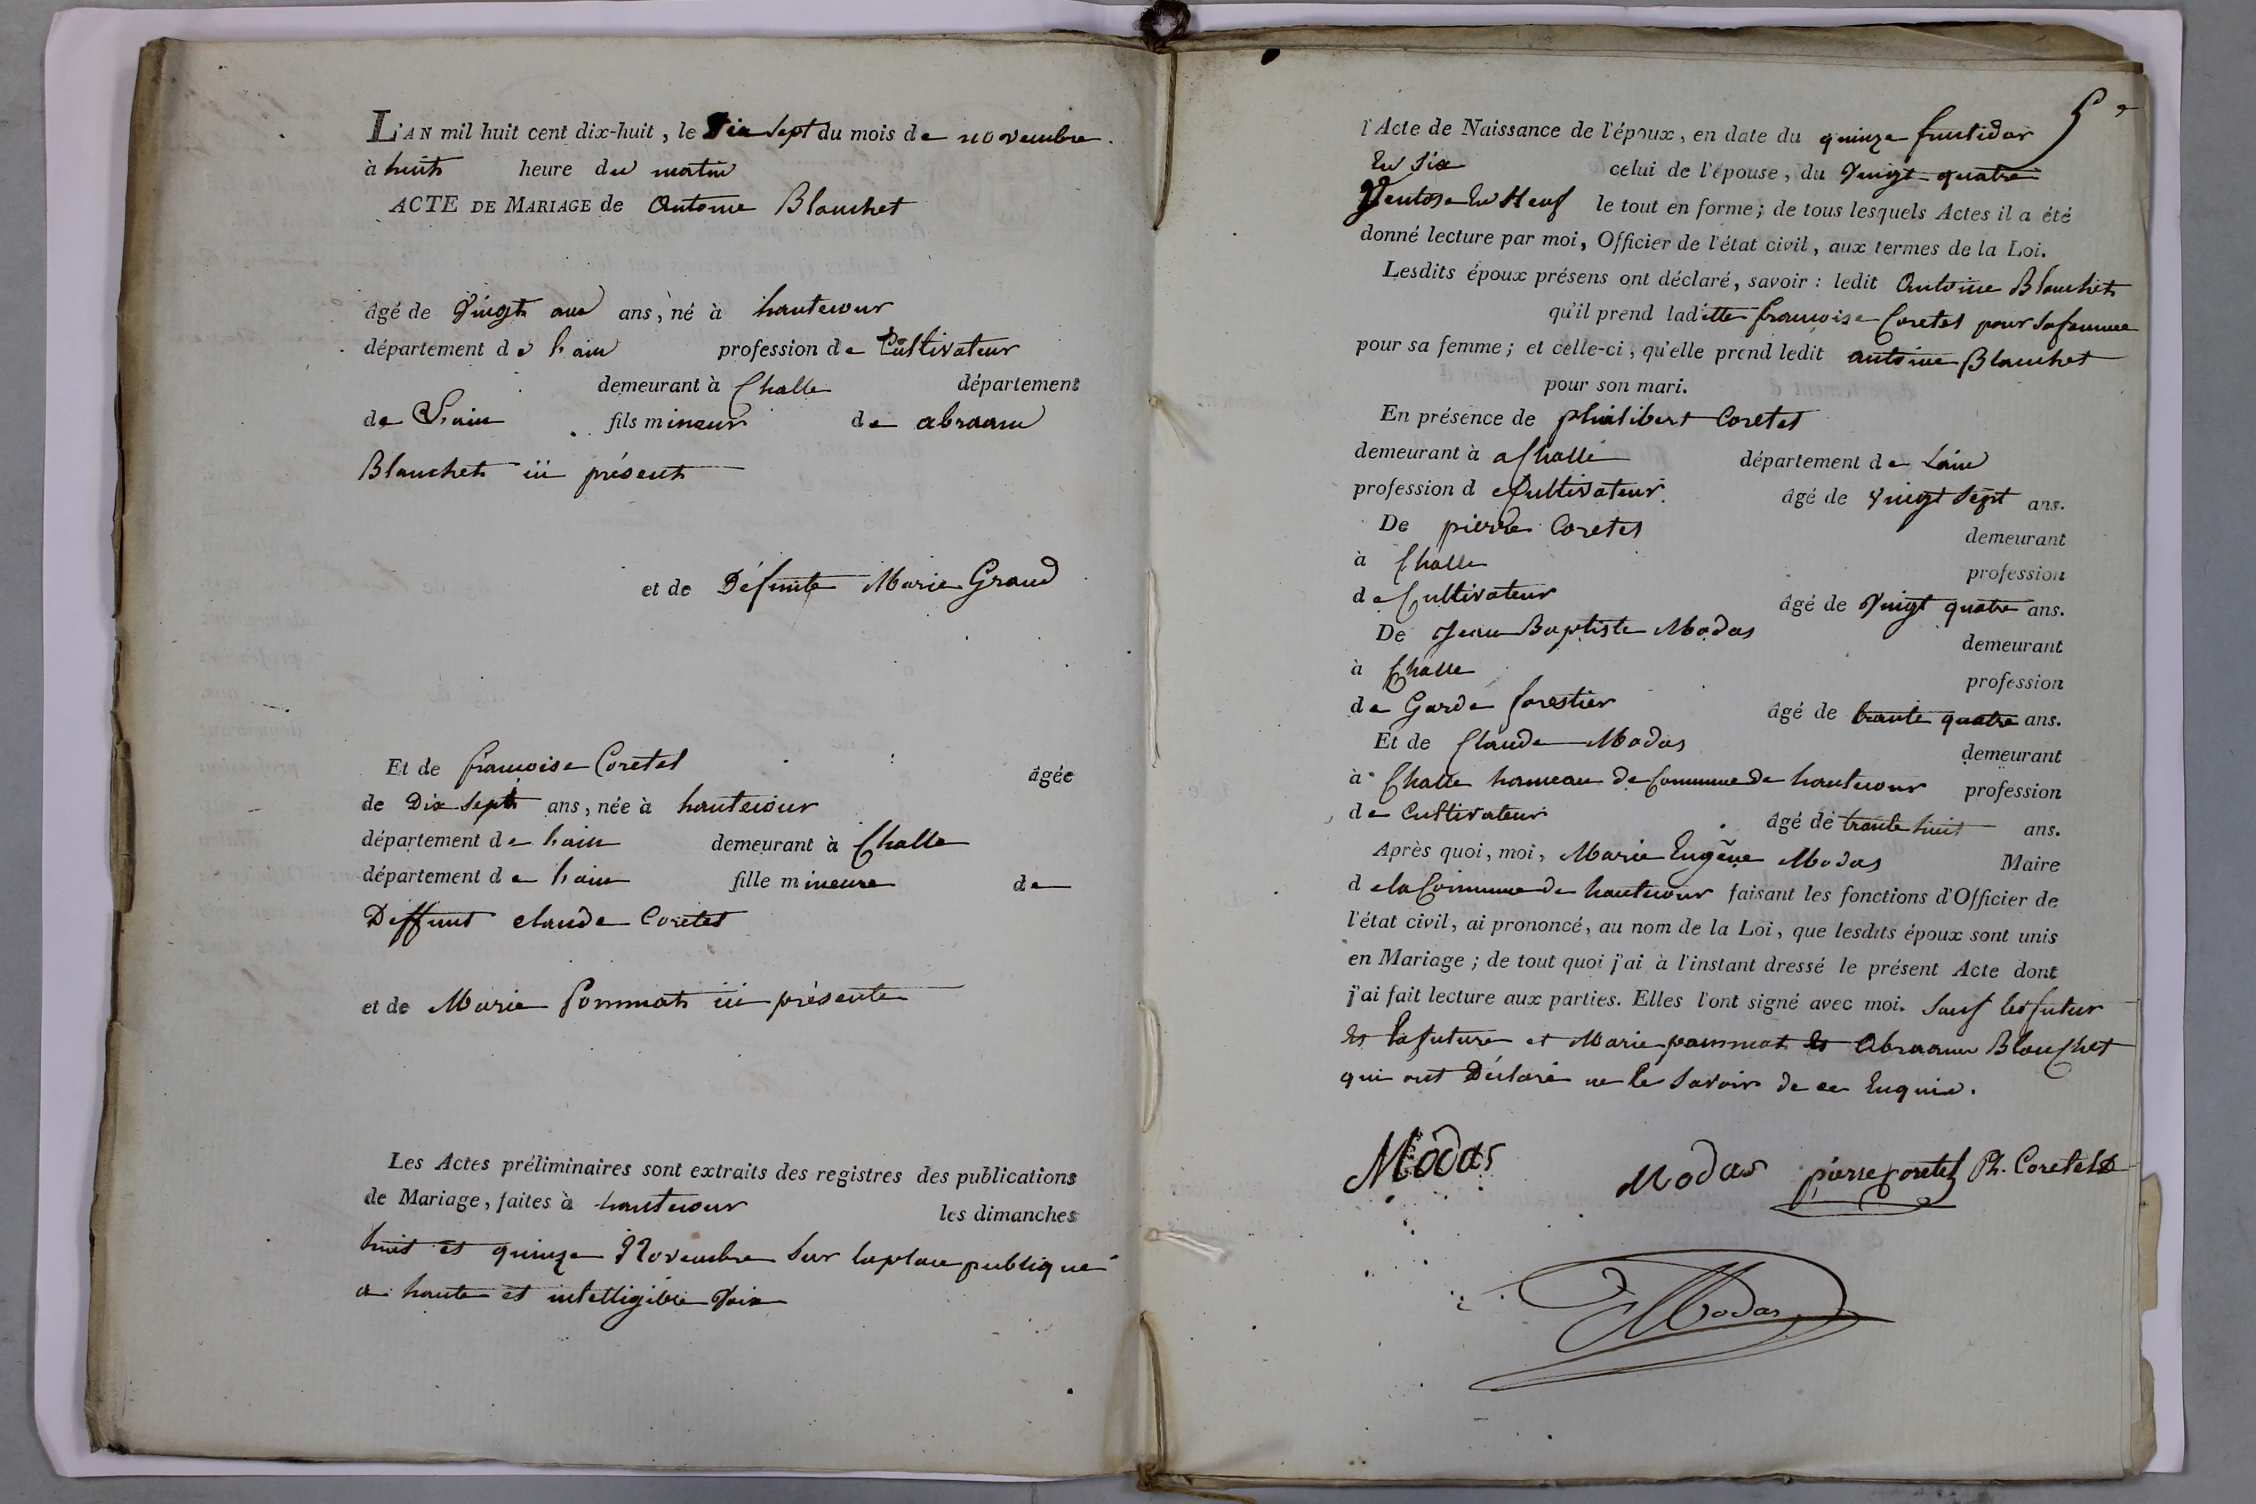 L'AN mil huit cent dix-huit, le Dix Sept du mois de novembre.
à huit heure du matin
ACTE DE MARIAGE de Antoine Blanchet
âgé de Vingt ans ans, né à hautecour
département de l'ain profession de Cultivateur
demeurant à Challe département
de L'ain fils mineur de abraam
Blanchet ici présent
et de Défunte Marie Grand
Et de francoise Coretel âgée
de Dix Sept ans, née à hautecour
département de l'ain demeurant à Challe
département de l'ain fille mineure de
Deffunt claude Coretet
et de Marie Pommat ici présente
Les Actes préliminaires sont extraits des registres des publications
de Mariage, faites à hautecour les dimanches
huit et quinze Novembre Sur la place publique
a haute et intelligible Voix
5
l'Acte de Naissance de l'époux, en date du quinze fructidor
En Six celui de l'épouse, du Vingt-quatre
Ventose En Neuf le tout en forme; de tous lesquels Actes il a été
donné lecture par moi, Officier de l'état civil, aux termes de la Loi.
Lesdits époux présens ont déclaré, savoir : ledit Antoine Blanchet
qu'il prend laditte francoise Coretet pour Sa femme
pour sa femme; et celle-ci, qu'elle prend ledit antoine Blanchet
pour son mari.
En présence de philibert Coretet
demeurant à a Challe département de Lain
profession de Cultivateur. âgé de Vingt Sept ans.
De pierre Coretet demeurant
à Challe profession
de Cultivateur âgé de Vingt quatre ans.
De Jean Baptiste Modas demeurant
à Challe profession
de Garde forestier âgé de trante quatre ans.
Et de Claude Modas demeurant
à Challe hameau de Commune de hautecour profession
de Cultivateur âgé de trante huit ans.
Après quoi, moi, Marie Eugène Modas Maire
de la Commune de hautecour faisant les fonctions d'Officier de
l'état civil, ai prononcé, au nom de la Loi, que lesdits époux sont unis
en Mariage ; de tout quoi j'ai à l'instant dressé le présent Acte dont
j'ai fait lecture aux parties. Elles l'ont signé avec moi. Sauf les futur
et la future et Marie pommat et Abraam Blanchet
qui ont Déclaré ne le Savoir de ce Enquis.
Modas Modas pierre coretet Ph. Coretet
Modas